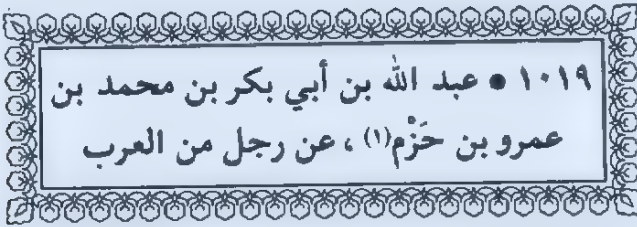 ١٠١٩ • عبد الله بن أبي بكر بن محمد بن
عمرو بن حَزْم(١) ، عن رجل من العرب